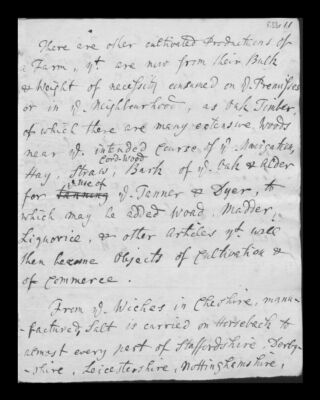 There are other cultivated Productions of
a Farm, yt. are now from their Bulk
& Weight of necessity consumed on ye. Premisses
or in ye. Neighbourhood, as Oak Timber,
of which there are many extensive Woods
near ye. intended course of ye. Navigation,
Cord-Wood
Hay, Straw, Bark of ye. Oak & Alder
use of
for Tanning ye. Tanner & Dyer, to
which may be added Woad, Madder,
Liquorice, & other Articles yt. will
then become Objects of Cultivation &
of Commerce.
From ye. Wiches in Cheshire, manu-
factured Salt is carried on Horseback to
almost every part of Staffordshire, Derby-
-shire, Leicestershire, Nottinghamshire,